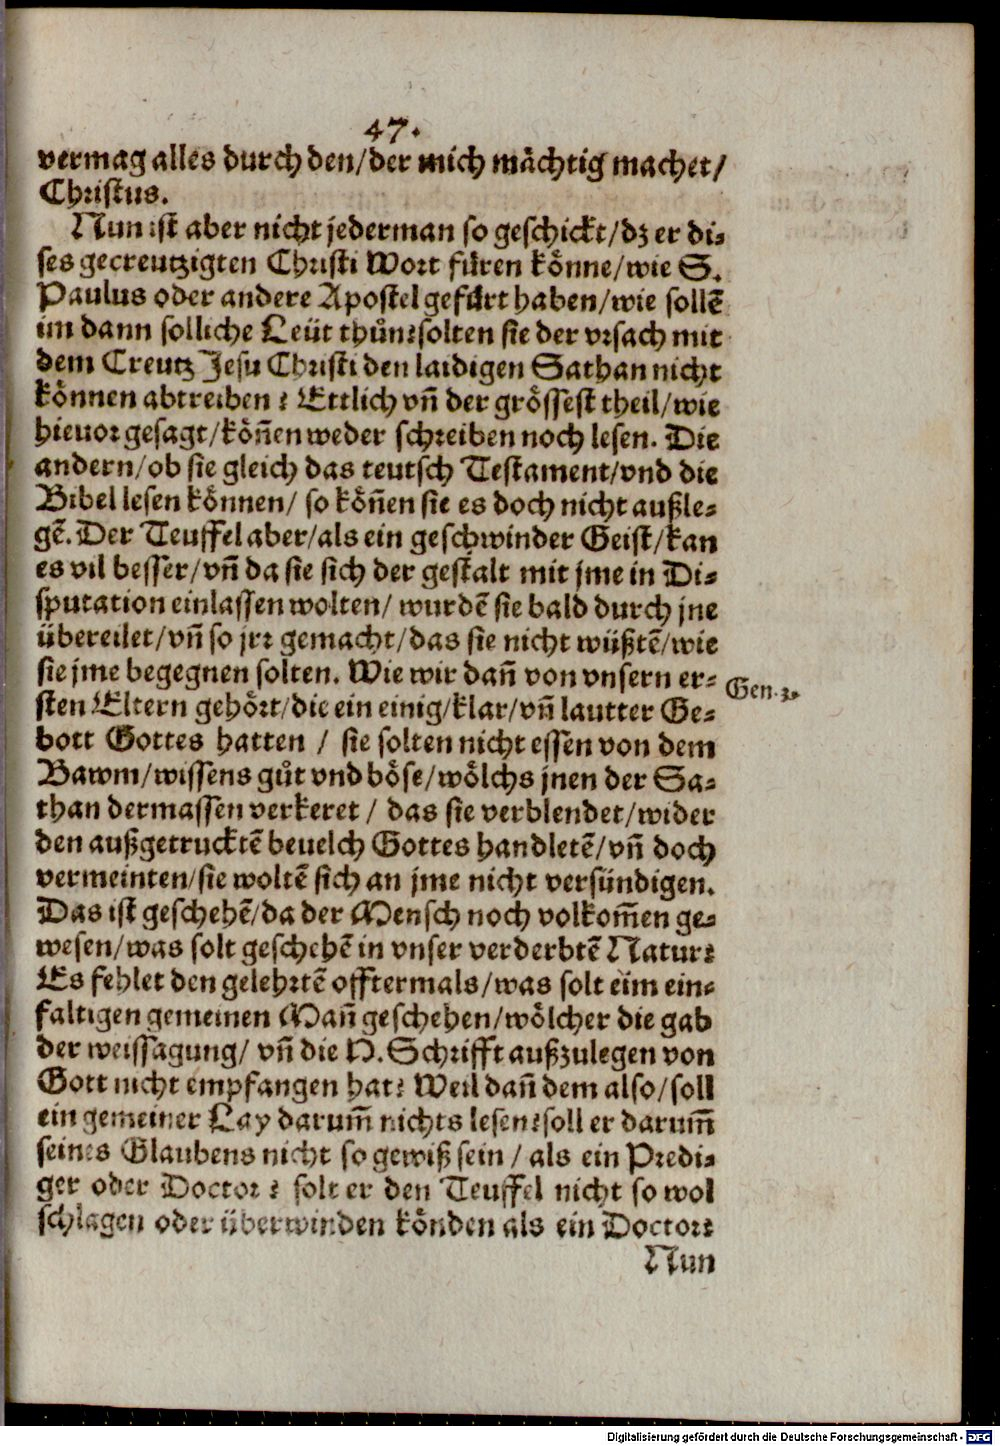 47.
vermag alles durch den/der mich mächtig machet/
Christus.
Nun ist aber nicht jederman so geschickt/dz er di-
ses gecreutzigten Christi Wort füren könne/wie S.
Paulus oder andere Apostel gefürt haben/wie sollẽ
im dann solliche Leüt thůn? solten sie der vrsach mit
dem Creutz Jesu Christi den laidigen Sathan nicht
können abtreiben? Ettlich vñ der grössest theil/wie
hieuor gesagt/köñen weder schreiben noch lesen. Die
andern/ob sie gleich das teutsch Testament/vnd die
Bibel lesen können/ so köñen sie es doch nicht außle-
gẽ. Der Teuffel aber/als ein geschwinder Geist/kan
es vil besser/vñ da sie sich der gestalt mit jme in Di-
sputation einlassen wolten/ wurdẽ sie bald durch jne
übereilet/vñ so jrr gemacht/das sie nicht wüßtẽ/wie
sie jme begegnen solten. Wie wir dañ von vnsern er-
Gen. 3.
sten Eltern gehört/die ein einig/klar/vñ lautter Ge-
bott Gottes hatten / sie solten nicht essen von dem
Bawm/wissens gůt vnd böse/wölchs jnen der Sa-
than dermassen verkeret / das sie verblendet/wider
den außgetrucktẽ beuelch Gottes handletẽ/vñ doch
vermeinten/sie woltẽ sich an jme nicht versündigen.
Das ist geschehẽ/da der Mensch noch volkom̃en ge-
wesen/was solt geschehẽ in vnser verderbtẽ Natur?
Es fehlet den gelehrtẽ offtermals/was solt eim ein-
faltigen gemeinen Mañ geschehen/wölcher die gab
der weissagung/ vñ die H. Schrifft außzulegen von
Gott nicht empfangen hat? Weil dañ dem also/soll
ein gemeiner Lay darum̃ nichts lesen? soll er darum̃
seines Glaubens nicht so gewiß sein / als ein Predi-
ger oder Doctor? solt er den Teuffel nicht so wol
schlagen oder überwinden könden als ein Doctor?
Nun
Digitalisierung gefördert durch die Deutsche Forschungsgemeinschaft - DFG